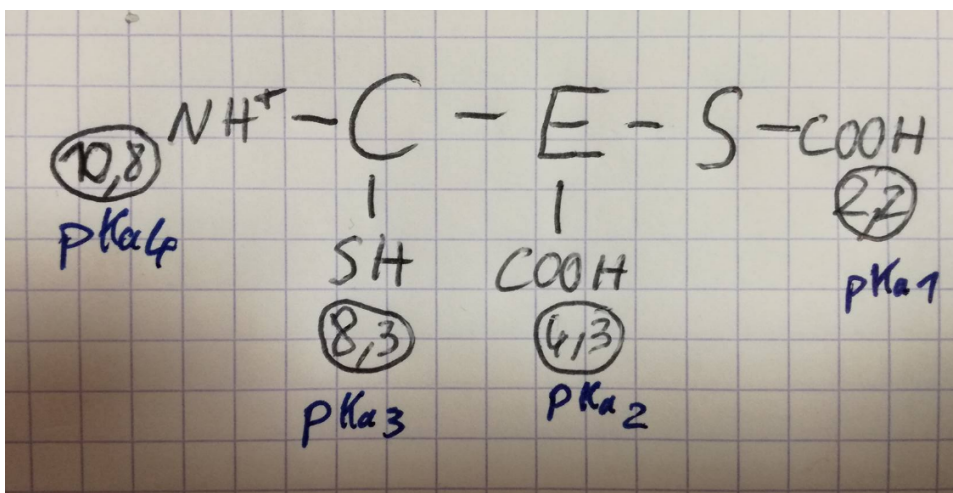 NH⁺ – C – E – S – COOH
10,8 2,2
pKa4 SH COOH pKa1
8,3 4,3
pKa3 pKa2